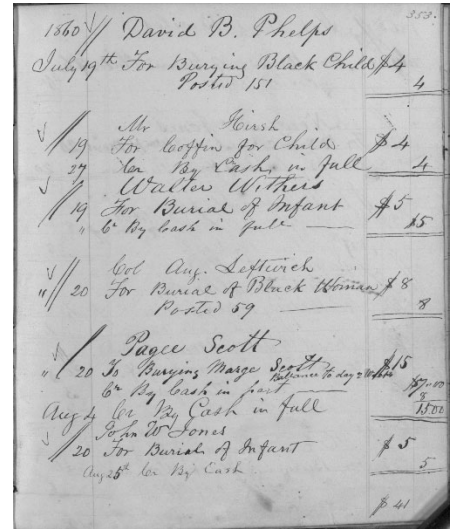 353.
1860 // David B. Phelps
July 19th For Burying Black Child $4
Posted 151 4
Mr Hirsh
// 19 For Coffin for Child $4
27 Cr By Cash in full 4
Walter Withers
// 19 For Burial of Infant $5
" Cr By Cash in full — $5
Col Aug. Leftwich
" // 20 For Burial of Black Woman $8
Posted 59 — 8
Pagee Scott
" // 20 To Burying Marge Scott $15
Ballance to day 2 Weeks
Cr By Cash in part — $7=00
8
Aug 4 Cr By Cash in full 1500
John W Jones
// 20 For Burial of Infant $5
Aug 25th Cr By Cash 5
$41